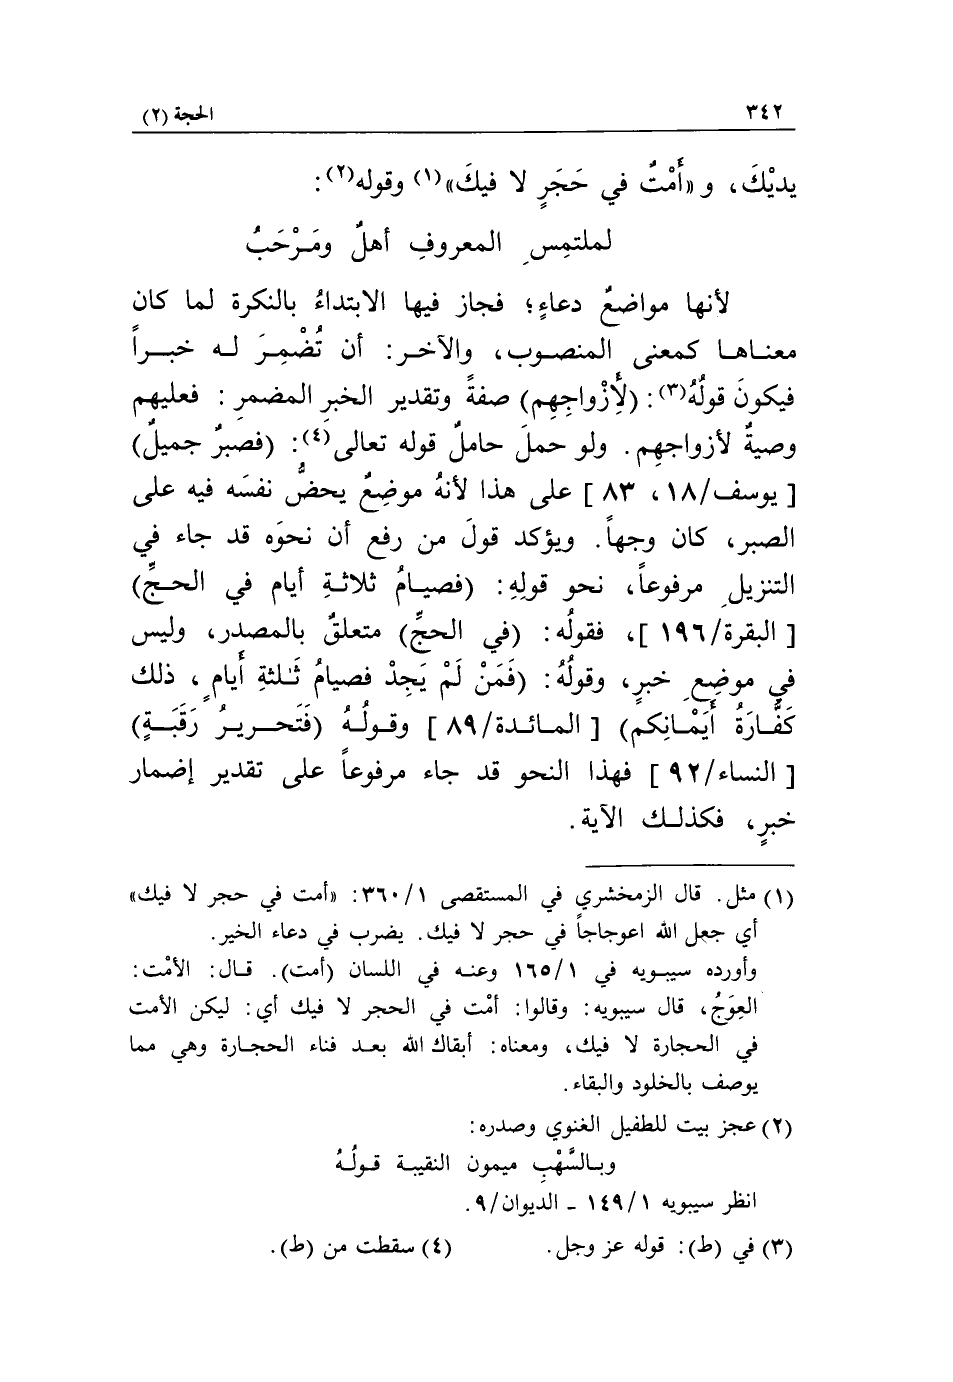 ٣٤٢ الحجة (٢)
يديْكَ، و «أَمْتٌ في حَجَرٍ لا فيكَ»(١) وقوله(٢):
لملتمِسِ المعروفِ أهلٌ ومَرْحَبُ
لأنها مواضعُ دعاءٍ؛ فجاز فيها الابتداءُ بالنكرة لما كان
معناها كمعنى المنصوب، والآخر: أن تُضْمِرَ له خبراً
فيكونَ قولُهُ(٣): (لأَزْواجِهِم) صفةً وتقدير الخبرِ المضمرِ : فعليهم
وصيةٌ لأزواجهِم. ولو حملَ حاملٌ قوله تعالى(٤): (فصبرٌ جميلٌ)
[يوسف/١٨، ٨٣] على هذا لأنهُ موضِعٌ يحضُّ نفسَه فيه على
الصبر، كان وجهاً. ويؤكد قولَ من رفع أن نحوَه قد جاء في
التنزيلِ مرفوعاً، نحو قولِهِ: (فصيامُ ثلاثةِ أيام في الحجِّ)
[البقرة/١٩٦]، فقولُه: (في الحجِّ) متعلقٌ بالمصدر، وليس
في موضِعِ خبرٍ، وقولُهُ: (فَمَنْ لَمْ يَجِدْ فصيامُ ثَلٰثةِ أَيامٍ، ذلك
كَفَّارَةُ أَيَمْانِكم) [المائدة/٨٩] وقولُهُ (فَتَحريرُ رَقَبَةٍ)
[النساء/٩٢] فهذا النحو قد جاء مرفوعاً على تقدير إضمار
خبرٍ، فكذلك الآية.
(١) مثل. قال الزمخشري في المستقصى ٣٦٠/١: «أمت في حجر لا فيك»
أي جعل الله اعوجاجاً في حجر لا فيك. يضرب في دعاء الخير.
وأورده سيبويه في ١٦٥/١ وعنه في اللسان (أمت). قال: الأمْت:
العِوَجُ، قال سيبويه: وقالوا: أمْت في الحجر لا فيك أي: ليكن الأمت
في الحجارة لا فيك، ومعناه: أبقاك الله بعد فناء الحجارة وهي مما
يوصف بالخلود والبقاء.
(٢) عجز بيت للطفيل الغنوي وصدره:
وبالسَّهْبِ ميمون النقيبة قولُهُ
انظر سيبويه ١٤٩/١ - الديوان/٩.
(٣) في (ط): قوله عز وجل. (٤) سقطت من (ط).